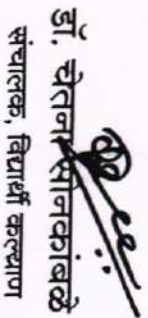 डॉ. चेतन सोनकांबळे
संचालक, विद्यार्थी कल्याण